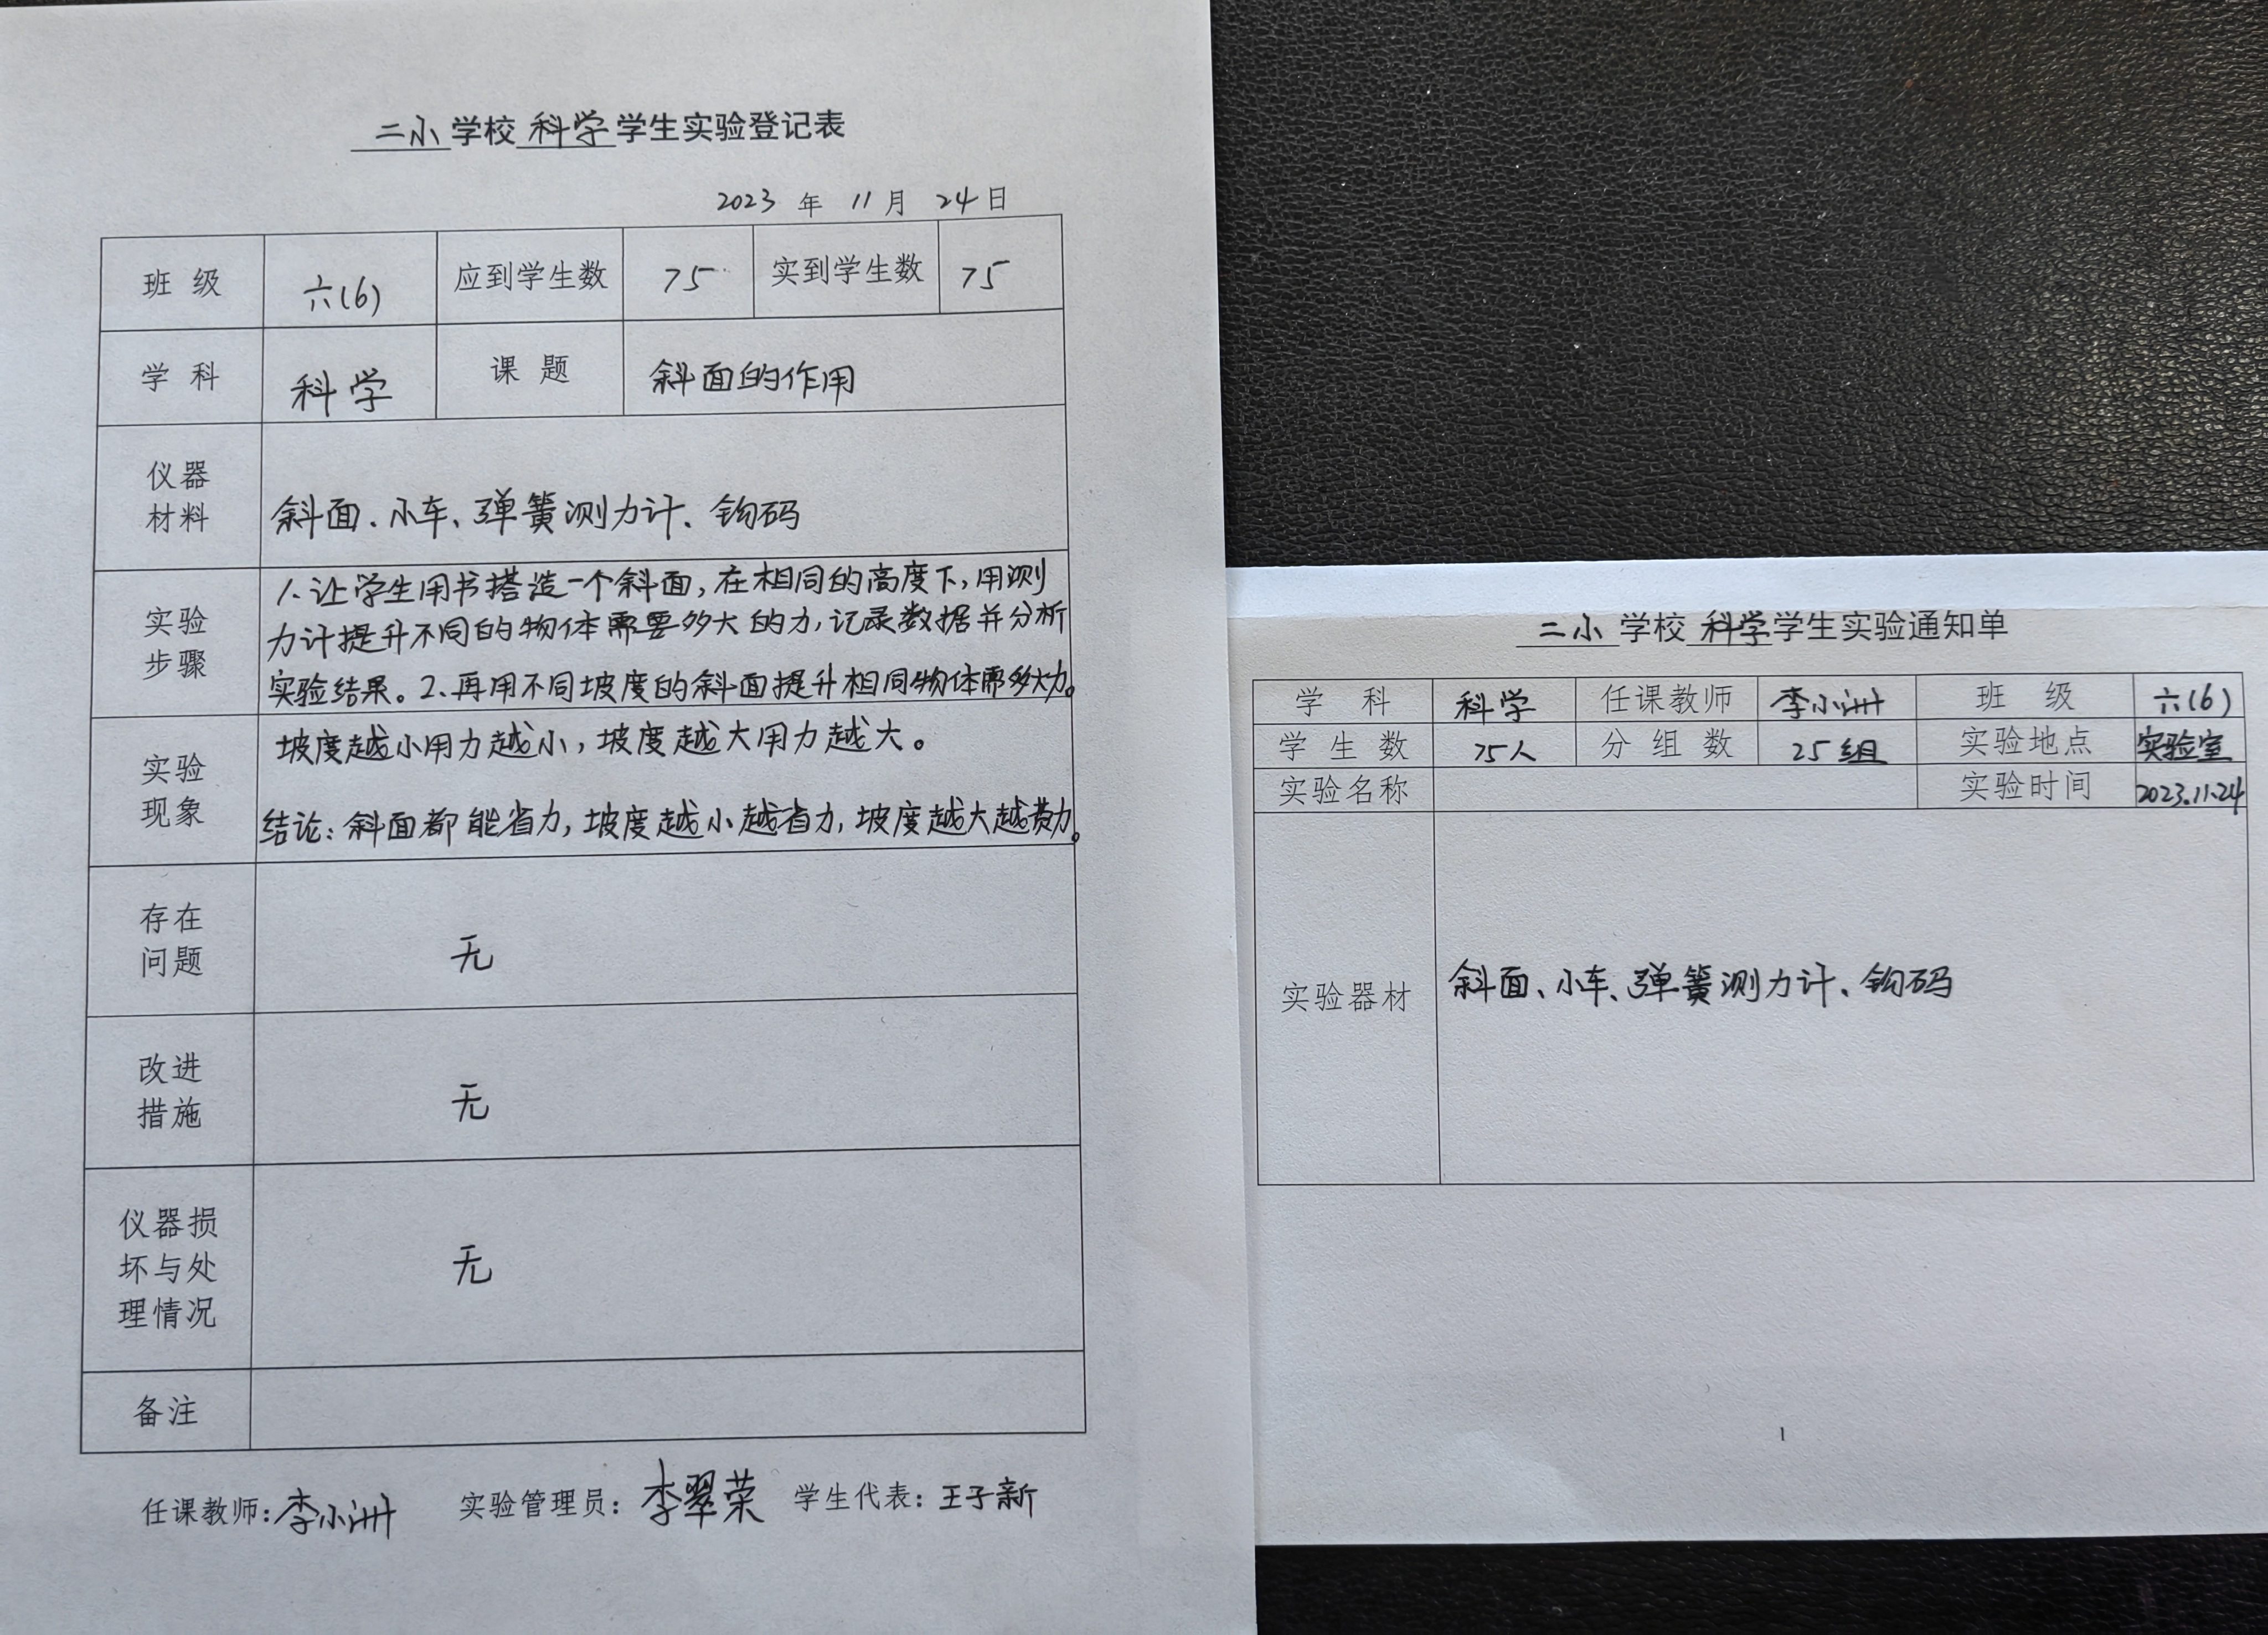 二小学校科学学生实验登记表
2023 年 11 月 24 日
班 级 六(6) 应到学生数 75 实到学生数 75
学 科 科学 课 题 斜面的作用
仪器
材料
斜面、小车、弹簧测力计、钩码
实验
步骤
1.让学生用书搭造一个斜面,在相同的高度下,用测
力计提升不同的物体需要多大的力,记录数据并分析
实验结果。2.再用不同坡度的斜面提升相同物体需多大力。
实验
现象
坡度越小用力越小,坡度越大用力越大。
结论:斜面都能省力,坡度越小越省力,坡度越大越费力。
存在
问题
无
改进
措施
无
仪器损
坏与处
理情况
无
备注
任课教师:李小洲 实验管理员:李翠荣 学生代表:王子新
二小学校科学学生实验通知单
学 科 科学 任课教师 李小洲 班 级 六(6)
学 生 数 75人 分 组 数 25组 实验地点 实验室
实验名称 实验时间 2023.11.24
实验器材 斜面、小车、弹簧测力计、钩码
1